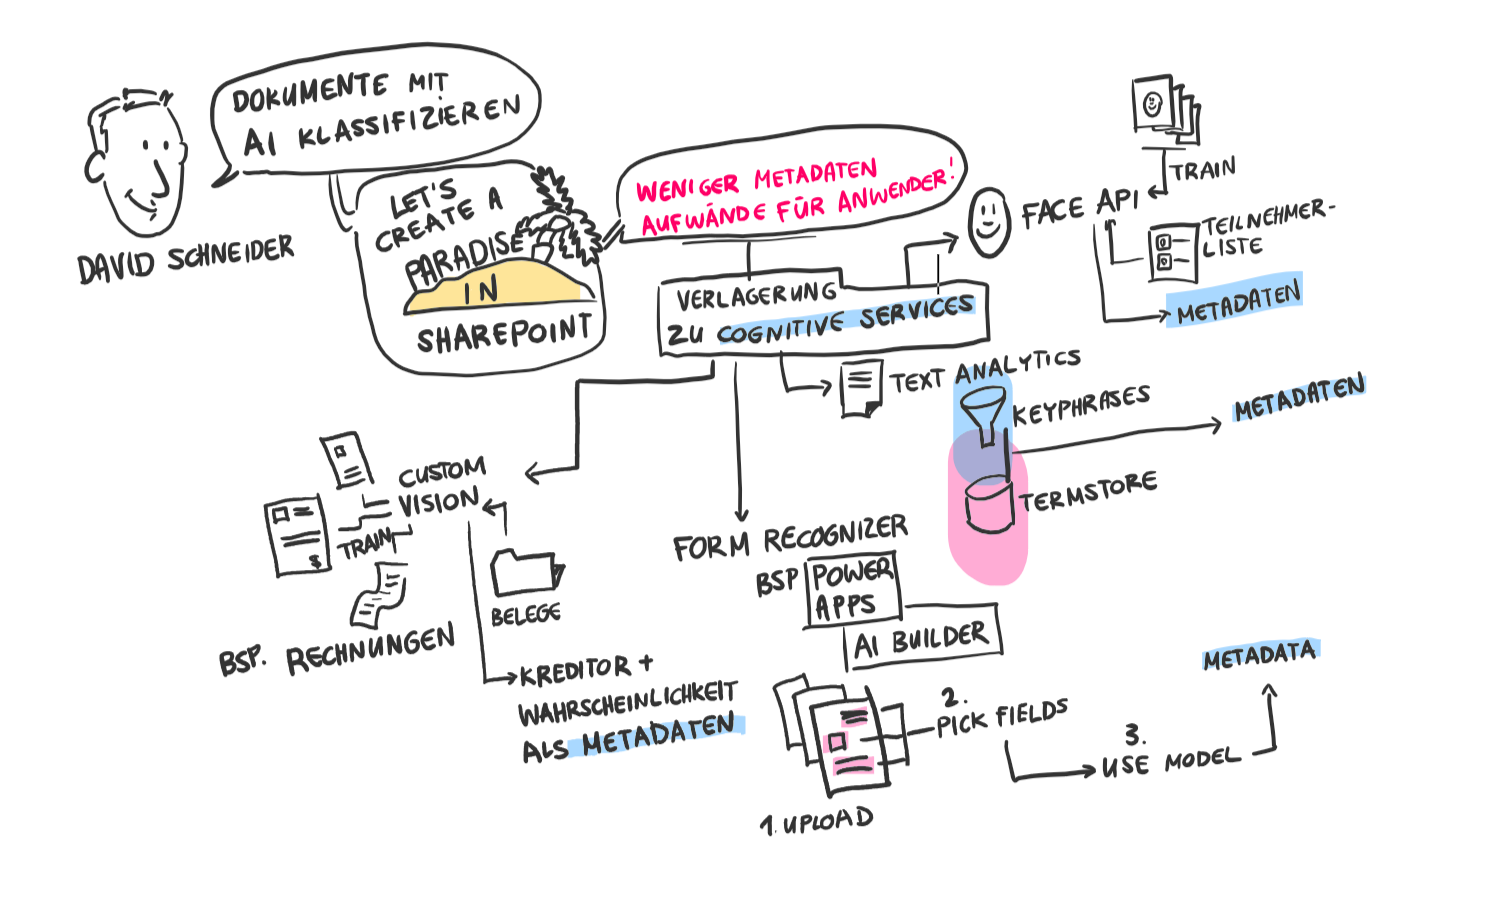 DOKUMENTE MIT
AI KLASSIFIZIEREN
DAVID SCHNEIDER
LET'S
CREATE A
PARADISE
IN
SHAREPOINT
WENIGER METADATEN
AUFWÄNDE FÜR ANWENDER!
VERLAGERUNG
ZU COGNITIVE SERVICES
FACE API
TRAIN
TEILNEHMER-
LISTE
METADATEN
TEXT ANALYTICS
KEYPHRASES
TERMSTORE
METADATEN
CUSTOM
VISION
TRAIN
$
BSP. RECHNUNGEN
BELEGE
KREDITOR +
WAHRSCHEINLICHKEIT
ALS METADATEN
FORM RECOGNIZER
BSP POWER
APPS
AI BUILDER
1. UPLOAD
2.
PICK FIELDS
3.
USE MODEL
METADATA